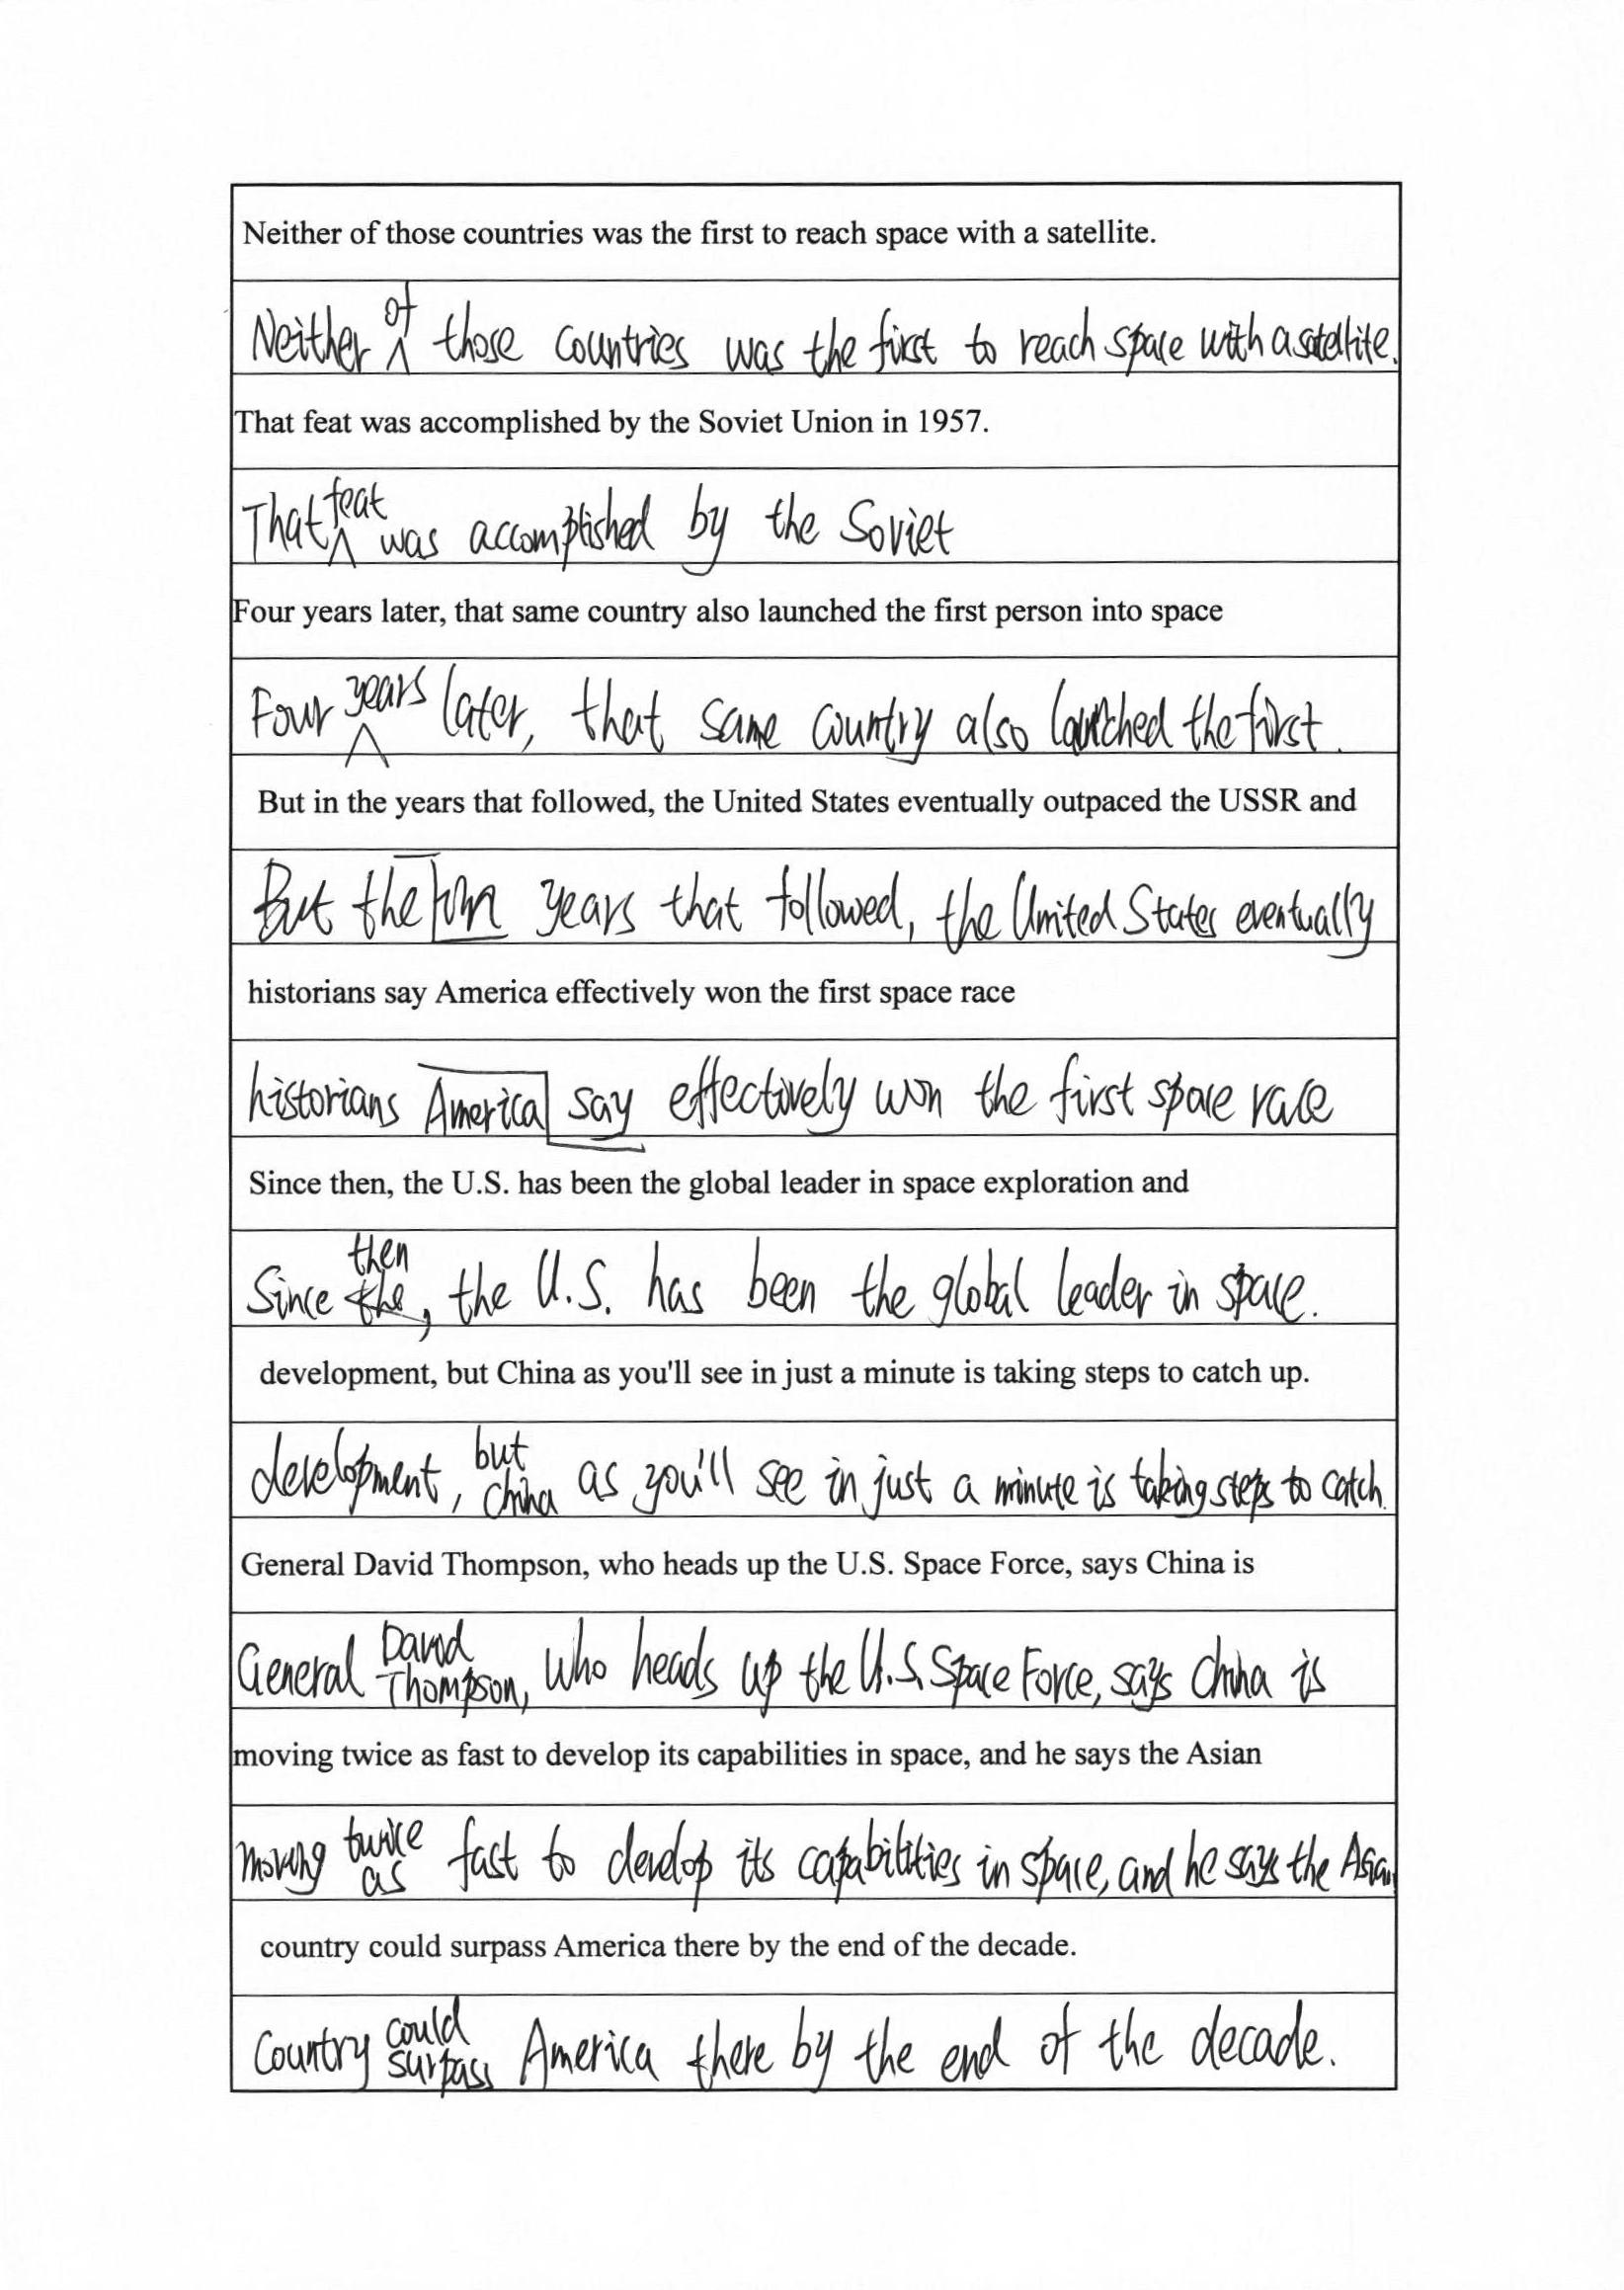 Neither of those countries was the first to reach space with a satellite.
Neither of those countries was the first to reach space with a satellite.
That feat was accomplished by the Soviet Union in 1957.
That feat was accomplished by the Soviet
Four years later, that same country also launched the first person into space
Four years later, that same country also launched the first.
But in the years that followed, the United States eventually outpaced the USSR and
But the in years that followed, the United States eventually
historians say America effectively won the first space race
historians America say effectively won the first space race
Since then, the U.S. has been the global leader in space exploration and
Since then, the U.S. has been the global leader in space.
development, but China as you'll see in just a minute is taking steps to catch up.
development, but china as you'll see in just a minute is taking steps to catch.
General David Thompson, who heads up the U.S. Space Force, says China is
General David Thompson, who heads up the U.S. Space Force, says china is
moving twice as fast to develop its capabilities in space, and he says the Asian
moving twice as fast to develop its capabilities in space, and he says the Asian
country could surpass America there by the end of the decade.
Country could surpass America there by the end of the decade.